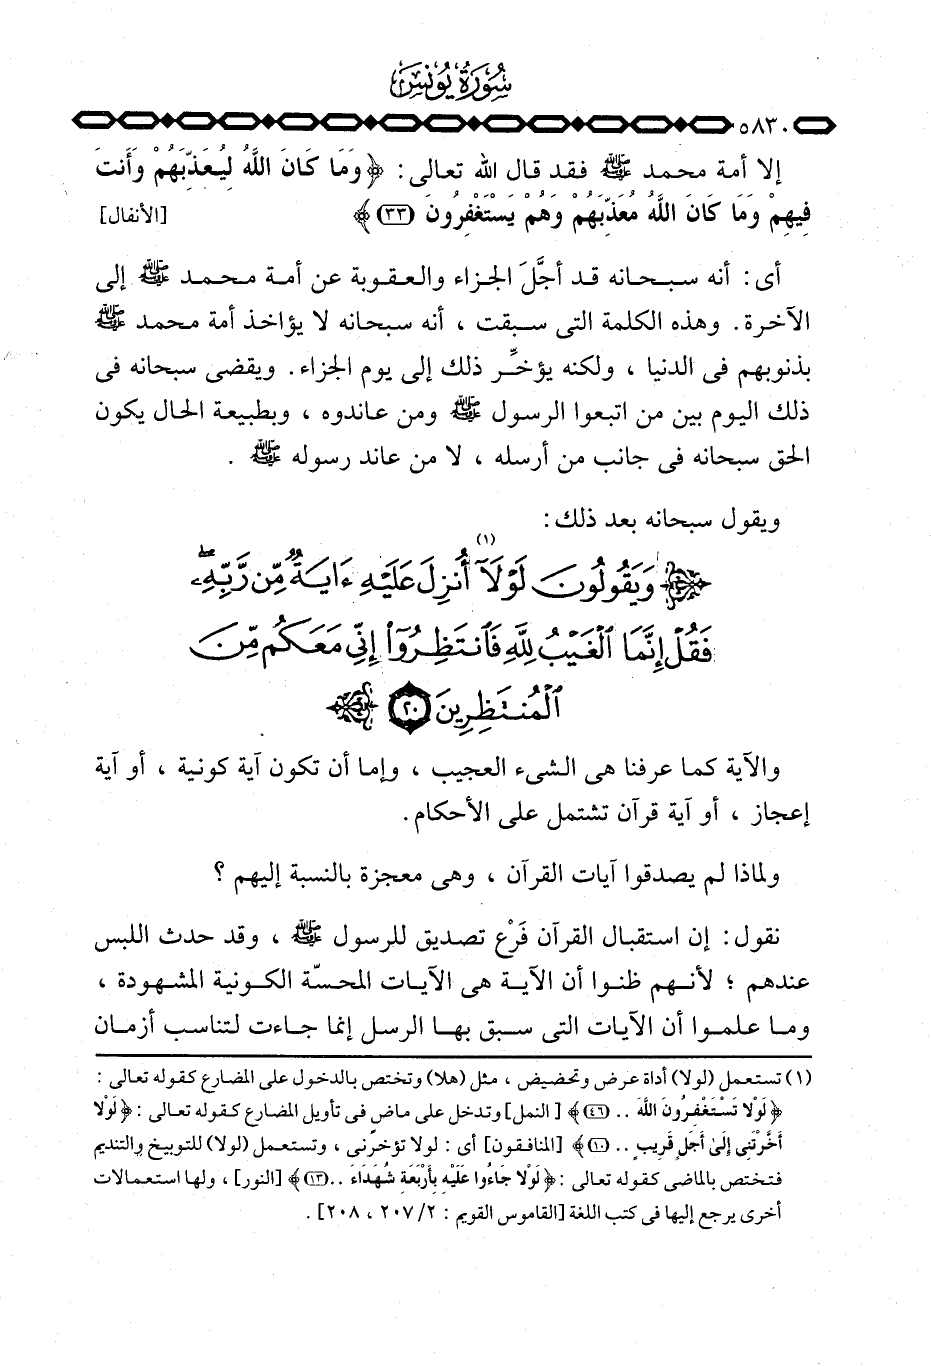 سُورَةُ يُونُسَ
٥٨٣٠
إلا أمة محمد ﷺ فقد قال الله تعالى : ﴿ وَمَا كَانَ اللَّهُ لِيُعَذِّبَهُمْ وَأَنتَ
فِيهِمْ وَمَا كَانَ اللَّهُ مُعَذِّبَهُمْ وَهُمْ يَسْتَغْفِرُونَ (٣٣) ﴾ [الأنفال]
أى : أنه سبحانه قد أجَّلَ الجزاء والعقوبة عن أمة محمد ﷺ إلى
الآخرة. وهذه الكلمة التى سبقت ، أنه سبحانه لا يؤاخذ أمة محمد ﷺ
بذنوبهم فى الدنيا ، ولكنه يؤخِّر ذلك إلى يوم الجزاء. ويقضى سبحانه فى
ذلك اليوم بين من اتبعوا الرسول ﷺ ومن عاندوه ، وبطبيعة الحال يكون
الحق سبحانه فى جانب من أرسله ، لا من عاند رسوله ﷺ .
ويقول سبحانه بعد ذلك :
﴿ وَيَقُولُونَ لَوْلَآ (١) أُنزِلَ عَلَيْهِ ءَايَةٌ مِّن رَّبِّهِۦ
فَقُلْ إِنَّمَا ٱلْغَيْبُ لِلَّهِ فَٱنتَظِرُوٓا۟ إِنِّى مَعَكُم مِّنَ
ٱلْمُنتَظِرِينَ ٢٠ ﴾
والآية كما عرفنا هى الشىء العجيب ، وإما أن تكون آية كونية ، أو آية
إعجاز ، أو آية قرآن تشتمل على الأحكام.
ولماذا لم يصدقوا آيات القرآن ، وهى معجزة بالنسبة إليهم ؟
نقول : إن استقبال القرآن فَرْع تصديق للرسول ﷺ ، وقد حدث اللبس
عندهم ؛ لأنهم ظنوا أن الآية هى الآيات المحسّة الكونية المشهودة ،
وما علموا أن الآيات التى سبق بها الرسل إنما جاءت لتناسب أزمان
(١) تستعمل (لولا) أداة عرض وتحضيض ، مثل (هلا) وتختص بالدخول على المضارع كقوله تعالى :
﴿ لَوْلا تَسْتَغْفِرُونَ اللَّهَ .. (٤٦) ﴾ [النمل] وتدخل على ماض فى تأويل المضارع كقوله تعالى : ﴿ لَوْلا
أَخَّرْتَنِى إِلَىٰ أَجَلٍ قَرِيبٍ .. (١٠) ﴾ [المنافقون] أى : لولا تؤخرّنى ، وتستعمل (لولا) للتوبيخ والتنديم
فتختص بالماضى كقوله تعالى : ﴿ لَوْلا جَاءُوا عَلَيْهِ بِأَرْبَعَةِ شُهَدَاءَ .. (١٣) ﴾ [النور] ، ولها استعمالات
أخرى يرجع إليها فى كتب اللغة [القاموس القويم : ٢/ ٢٠٧ ، ٢٠٨] .